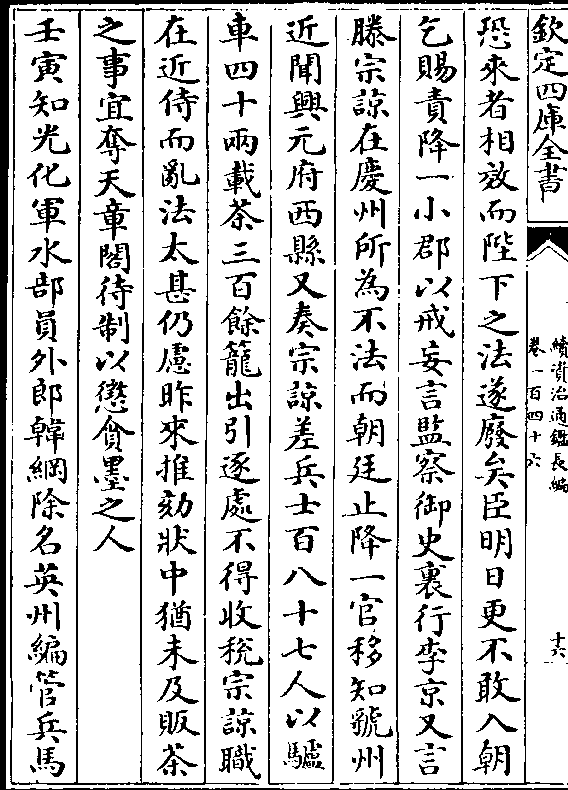 欽定四庫全書
續資治通鑑長編
卷一百四十六
十六
恐來者相效而陛下之法遂廢矣臣明日更不敢入朝
乞賜責降一小郡以戒妄言監察御史裏行李京又言
滕宗諒在慶州所為不法而朝廷止降一官移知虢州
近聞興元府西縣又奏宗諒差兵士百八十七人以驢
車四十兩載茶三百餘籠出引逐處不得收稅宗諒職
在近侍而亂法太甚仍慮昨來推劾狀中猶未及販茶
之事宜奪天章閣待制以懲貪墨之人
壬寅知光化軍水部員外郎韓綱除名英州編管兵馬